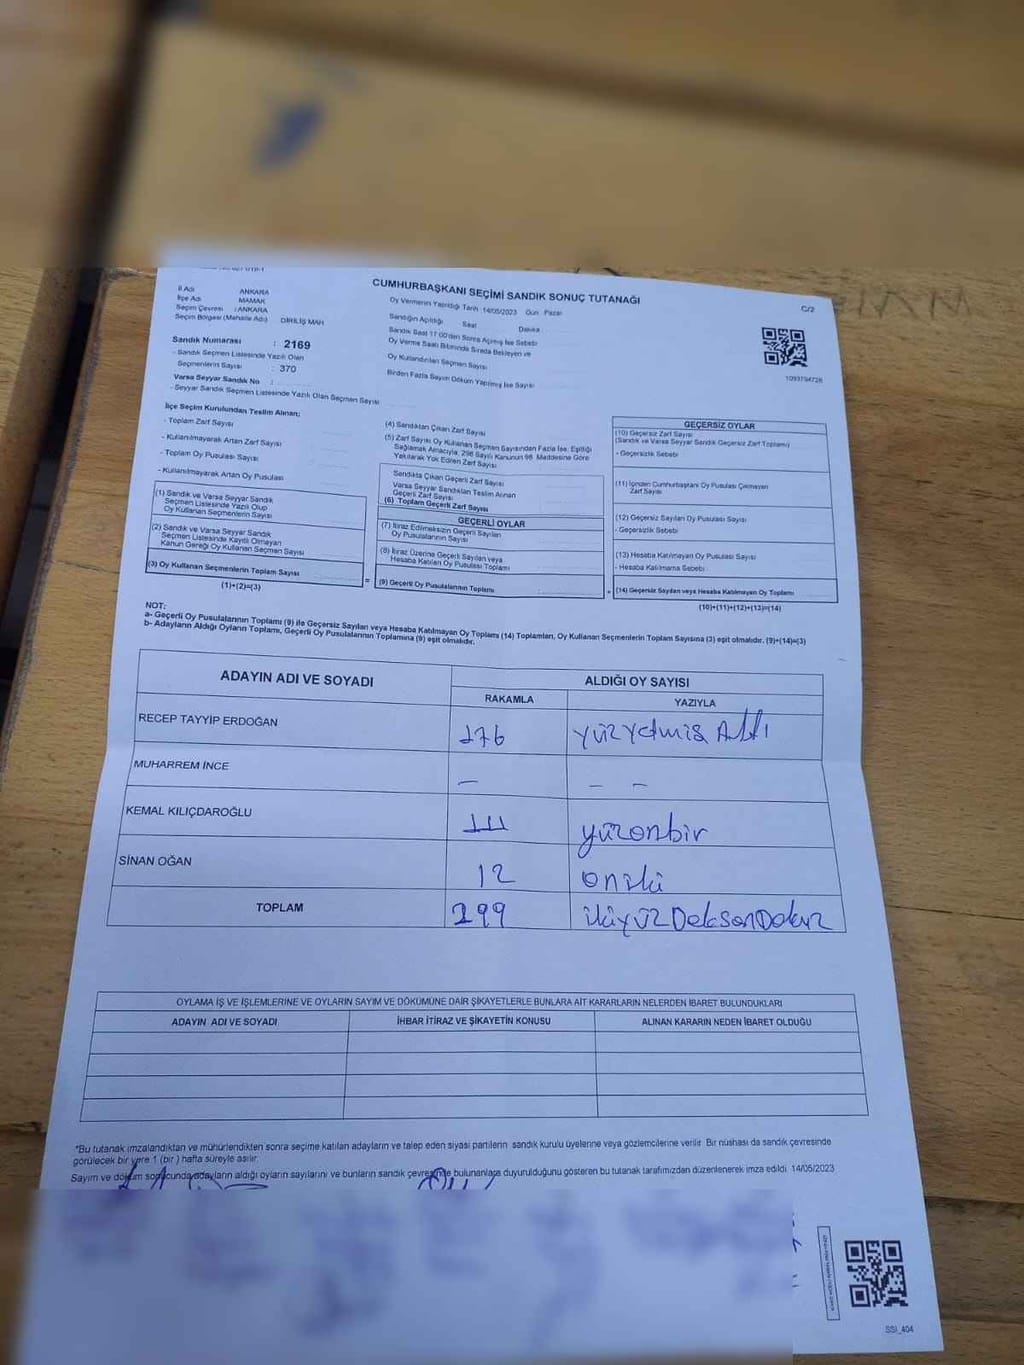 CUMHURBAŞKANI SEÇİMİ SANDIK SONUÇ TUTANAĞI
C/2
İl Adı ANKARA
İlçe Adı MAMAK
Seçim Çevresi : ANKARA
Seçim Bölgesi (Mahalle Adı) DİRİLİŞ MAH
Sandık Numarası : 2169
- Sandık Seçmen Listesinde Yazılı Olan
Seçmenlerin Sayısı : 370
Varsa Seyyar Sandık No :
- Seyyar Sandık Seçmen Listesinde Yazılı Olan Seçmen Sayısı
Oy Vermenin Yapıldığı Tarih 14/05/2023 Gün Pazar
Sandığın Açıldığı Saat Dakika
Sandık Saat 17.00'den Sonra Açılmış İse Sebebi
Oy Verme Saati Bitiminde Sırada Bekleyen ve
Oy Kullandırılan Seçmen Sayısı
Birden Fazla Sayım Döküm Yapılmış İse Sayısı
1093794728
İlçe Seçim Kurulundan Teslim Alınan;
- Toplam Zarf Sayısı
- Kullanılmayarak Artan Zarf Sayısı
- Toplam Oy Pusulası Sayısı
- Kullanılmayarak Artan Oy Pusulası
(1) Sandık ve Varsa Seyyar Sandık
Seçmen Listesinde Yazılı Olup
Oy Kullanan Seçmenlerin Sayısı
(2) Sandık ve Varsa Seyyar Sandık
Seçmen Listesinde Kayıtlı Olmayan
Kanun Gereği Oy Kullanan Seçmen Sayısı
(3) Oy Kullanan Seçmenlerin Toplam Sayısı
(1)+(2)=(3)
(4) Sandıktan Çıkan Zarf Sayısı
(5) Zarf Sayısı Oy Kullanan Seçmen Sayısından Fazla İse, Eşitliği
Sağlamak Amacıyla, 298 Sayılı Kanunun 98. Maddesine Göre
Yakılarak Yok Edilen Zarf Sayısı
Sandıkta Çıkan Geçerli Zarf Sayısı
Varsa Seyyar Sandıktan Teslim Alınan
Geçerli Zarf Sayısı
(6) Toplam Geçerli Zarf Sayısı
GEÇERLİ OYLAR
(7) İtiraz Edilmeksizin Geçerli Sayılan
Oy Pusulalarının Sayısı
(8) İtiraz Üzerine Geçerli Sayılan veya
Hesaba Katılan Oy Pusulası Toplamı
= (9) Geçerli Oy Pusulalarının Toplamı
GEÇERSİZ OYLAR
(10) Geçersiz Zarf Sayısı
(Sandık ve Varsa Seyyar Sandık Geçersiz Zarf Toplamı)
- Geçersizlik Sebebi
(11) İçinden Cumhurbaşkanı Oy Pusulası Çıkmayan
Zarf Sayısı
(12) Geçersiz Sayılan Oy Pusulası Sayısı
- Geçersizlik Sebebi
(13) Hesaba Katılmayan Oy Pusulası Sayısı
- Hesaba Katılmama Sebebi
+ (14) Geçersiz Sayılan veya Hesaba Katılmayan Oy Toplamı
(10)+(11)+(12)+(13)=(14)
NOT:
a- Geçerli Oy Pusulalarının Toplamı (9) ile Geçersiz Sayılan veya Hesaba Katılmayan Oy Toplamı (14) Toplamları, Oy Kullanan Seçmenlerin Toplam Sayısına (3) eşit olmalıdır. (9)+(14)=(3)
b- Adayların Aldığı Oyların Toplamı, Geçerli Oy Pusulalarının Toplamına (9) eşit olmalıdır.
ADAYIN ADI VE SOYADI ALDIĞI OY SAYISI
RAKAMLA YAZIYLA
RECEP TAYYİP ERDOĞAN 176 yüzyetmiş Altı
MUHARREM İNCE — — —
KEMAL KILIÇDAROĞLU 111 yüzonbir
SİNAN OĞAN 12 oniki
TOPLAM 299 ikiyüzDoksanDokuz
OYLAMA İŞ VE İŞLEMLERİNE VE OYLARIN SAYIM VE DÖKÜMÜNE DAİR ŞİKAYETLERLE BUNLARA AİT KARARLARIN NELERDEN İBARET BULUNDUKLARI
ADAYIN ADI VE SOYADI İHBAR İTİRAZ VE ŞİKAYETİN KONUSU ALINAN KARARIN NEDEN İBARET OLDUĞU
*Bu tutanak imzalandıktan ve mühürlendikten sonra seçime katılan adayların ve talep eden siyasi partilerin sandık kurulu üyelerine veya gözlemcilerine verilir. Bir nüshası da sandık çevresinde
görülecek bir yere 1 (bir) hafta süreyle asılır.
Sayım ve döküm sonucunda adayların aldığı oyların sayılarını ve bunların sandık çevresinde bulunanlara duyurulduğunu gösteren bu tutanak tarafımızdan düzenlenerek imza edildi. 14/05/2023
SSI_404